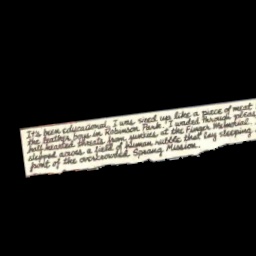 It's been educational. I was sized up like a piece of meat
the leather boys in Robinson Park. I waded through pleas
half-hearted threats from junkies at the Finger Memorial.
stepped across a field of human rubble that lay sleeping
front of the overcrowded Sprang Mission.